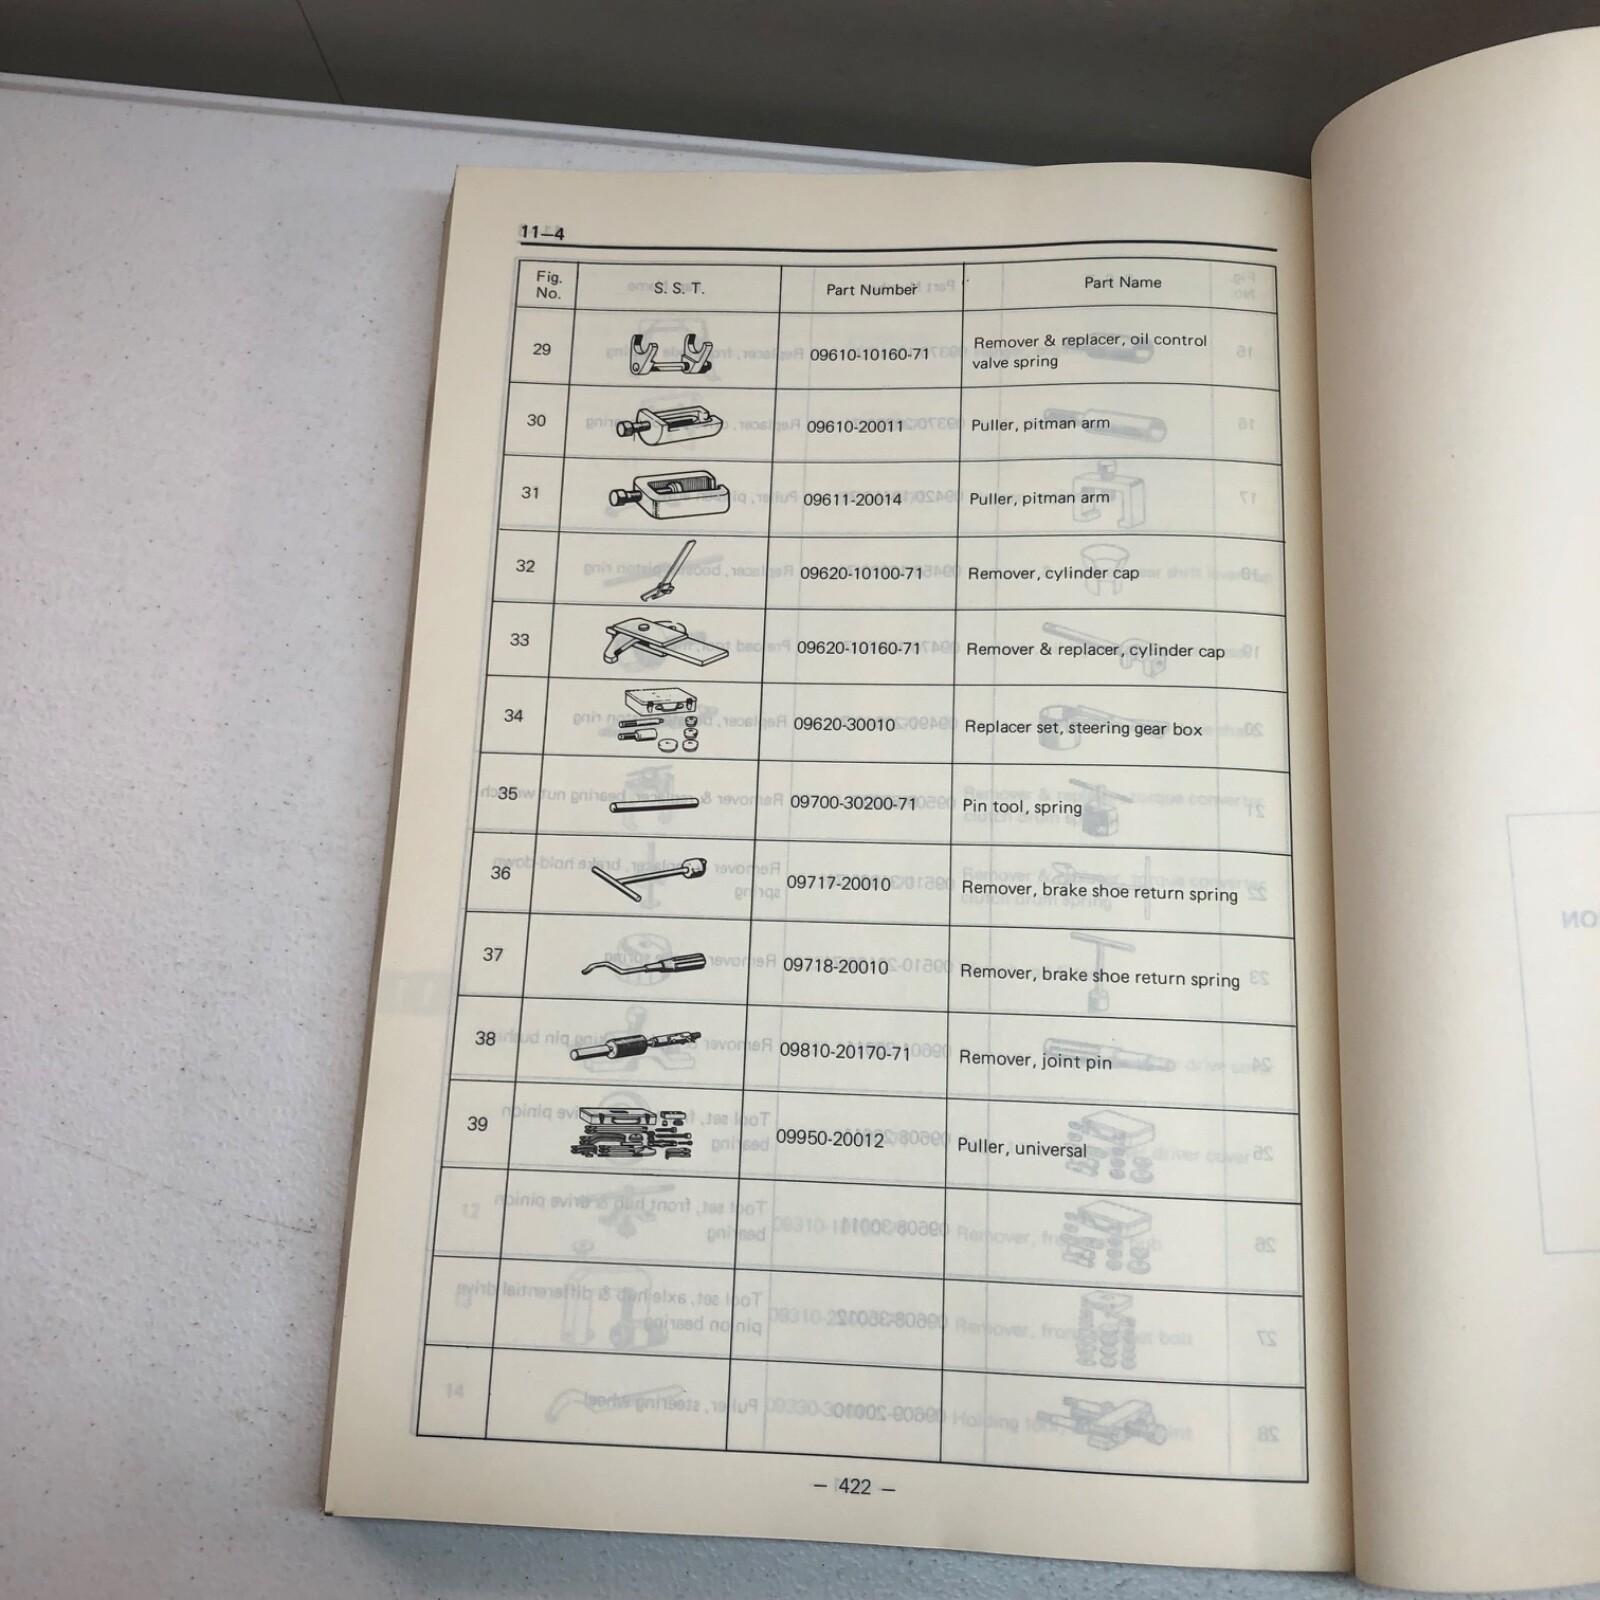 11—4
Fig. No. S. S. T. Part Number Part Name
29 09610-10160-71 Remover & replacer, oil control
valve spring
30 09610-20011 Puller, pitman arm
31 09611-20014 Puller, pitman arm
32 09620-10100-71 Remover, cylinder cap
33 09620-10160-71 Remover & replacer, cylinder cap
34 09620-30010 Replacer set, steering gear box
35 09700-30200-71 Pin tool, spring
36 09717-20010 Remover, brake shoe return spring
37 09718-20010 Remover, brake shoe return spring
38 09810-20170-71 Remover, joint pin
39 09950-20012 Puller, universal
— 422 —